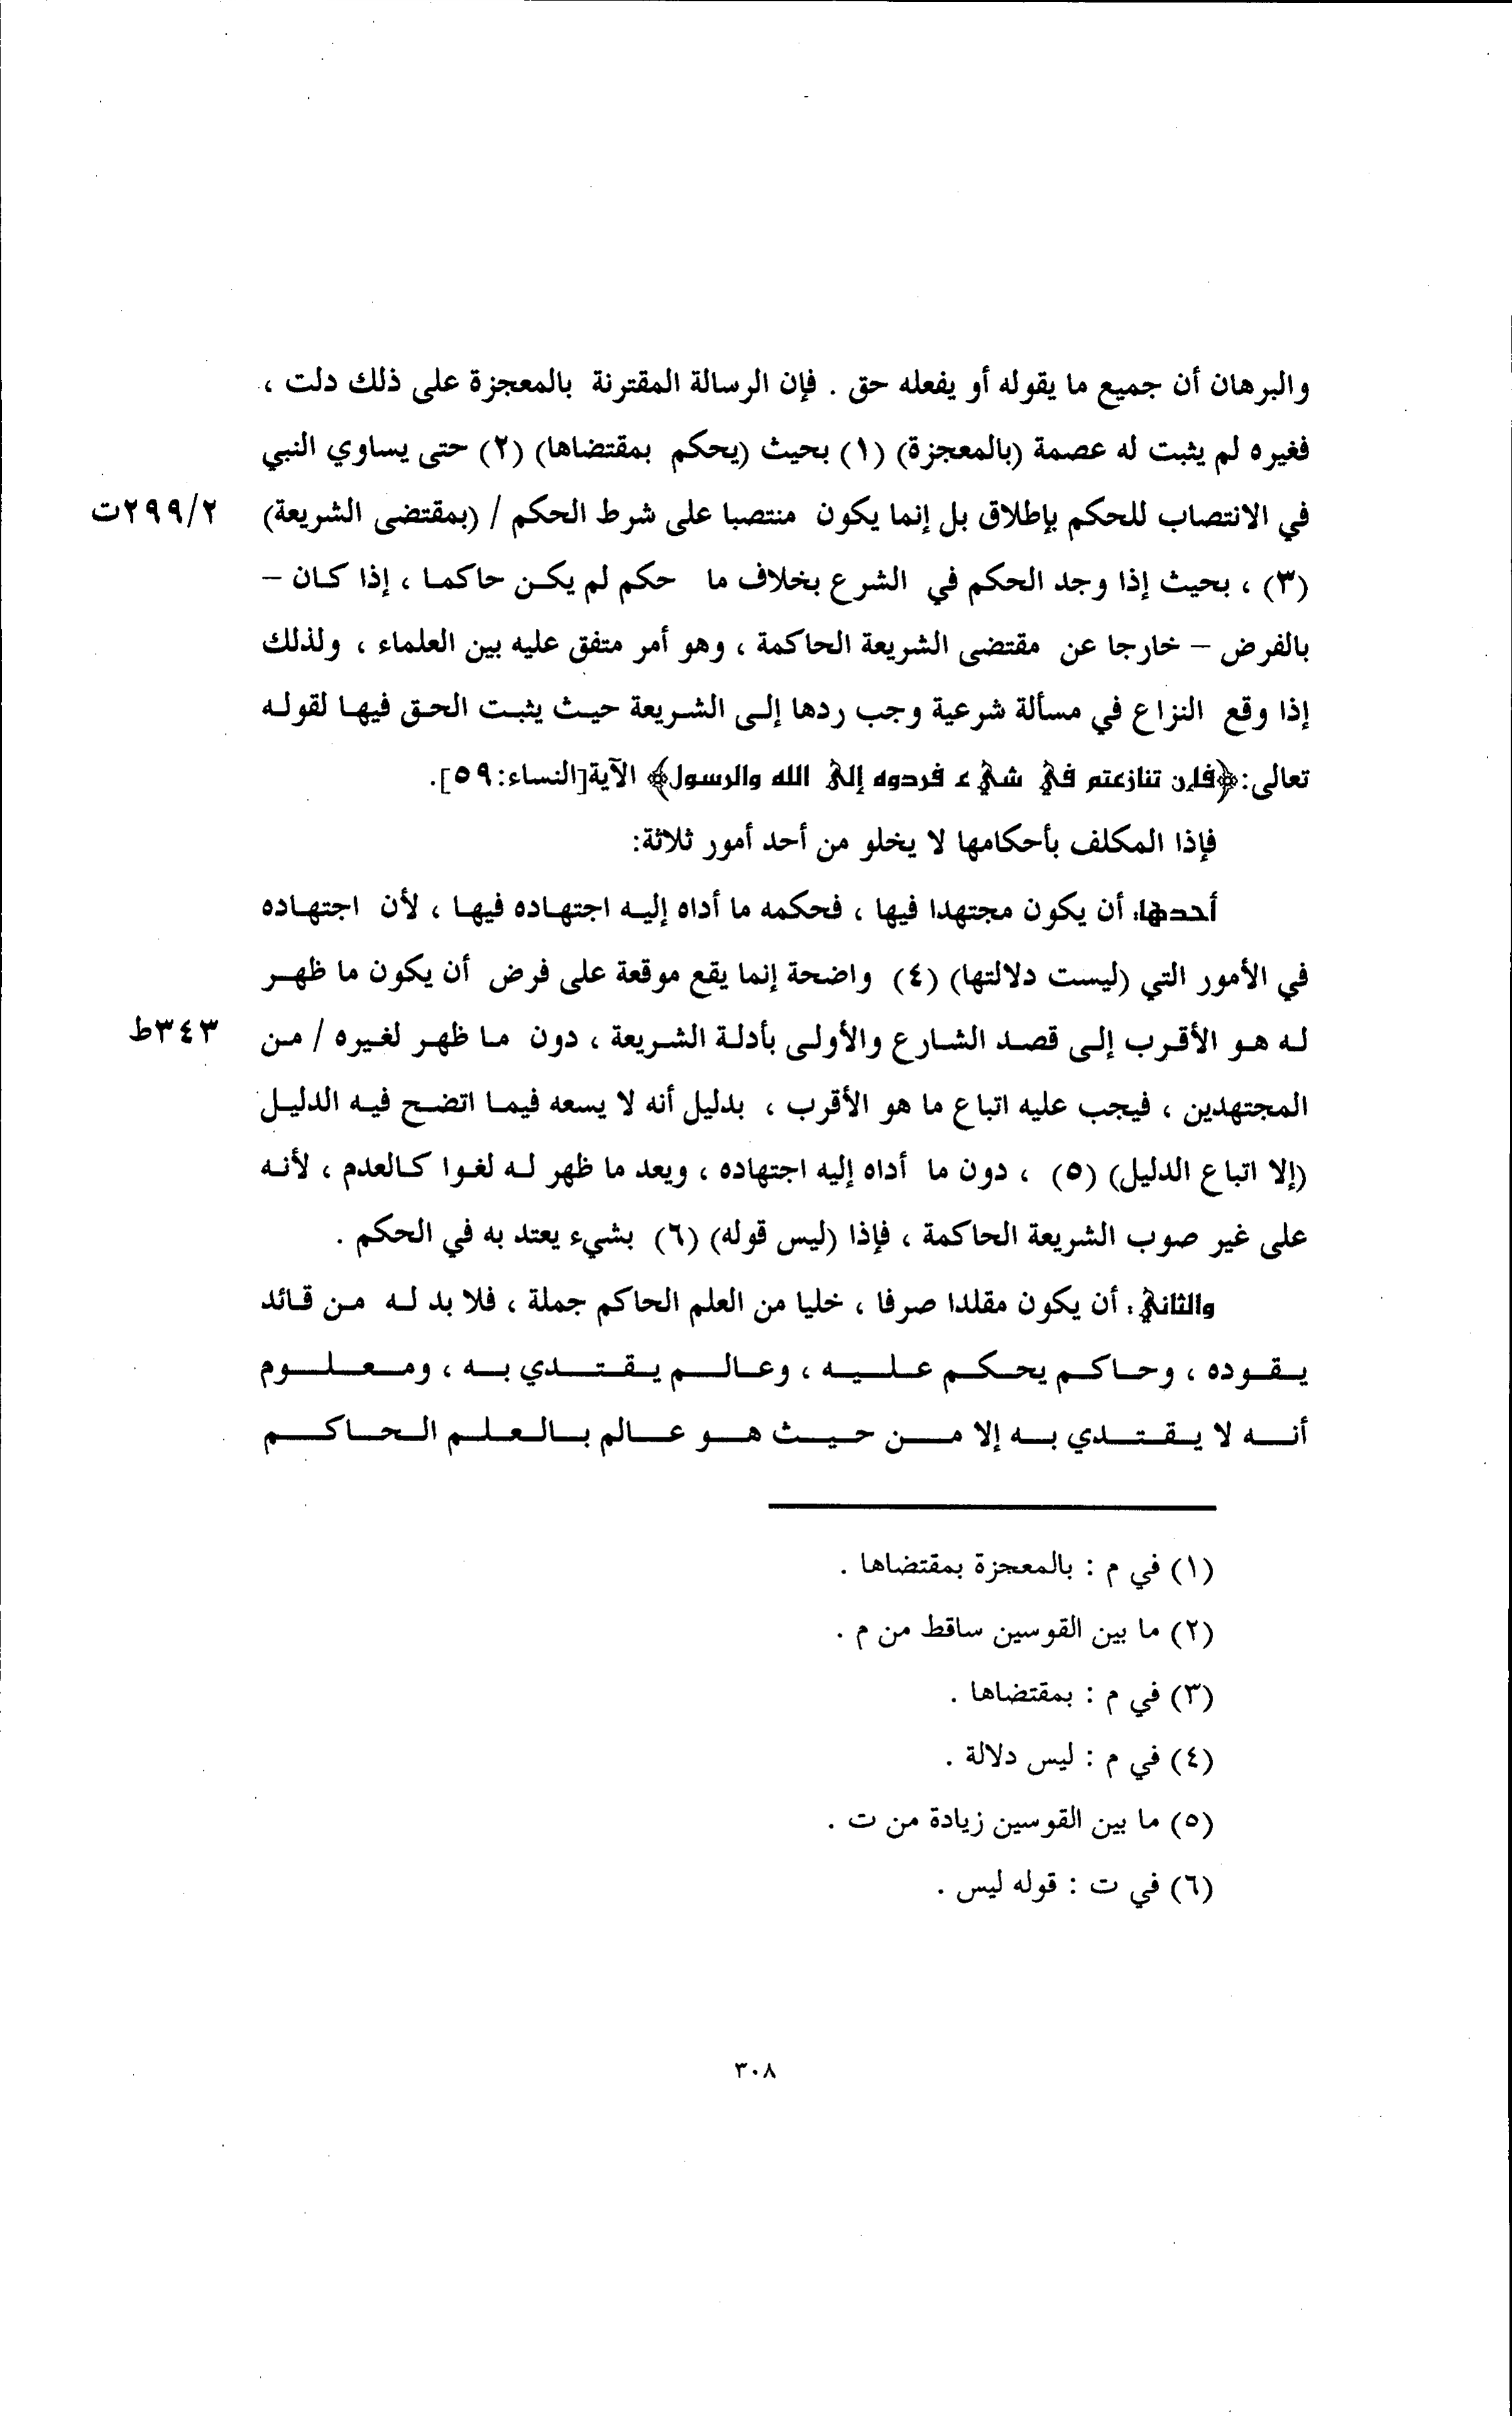 والبرهان أن جميع ما يقوله أو يفعله حق . فإن الرسالة المقترنة بالمعجزة على ذلك دلت ،
فغيره لم يثبت له عصمة (بالمعجزة) (١) بحيث (يحكم بمقتضاها) (٢) حتى يساوي النبي
في الانتصاب للحكم بإطلاق بل إنما يكون منتصبا على شرط الحكم / (بمقتضى الشريعة) ٢٩٩/٢ت
(٣) ، بحيث إذا وجد الحكم في الشرع بخلاف ما حكم لم يكن حاكما ، إذا كان –
بالفرض – خارجا عن مقتضى الشريعة الحاكمة ، وهو أمر متفق عليه بين العلماء ، ولذلك
إذا وقع النزاع في مسألة شرعية وجب ردها إلى الشريعة حيث يثبت الحق فيها لقوله
تعالى:﴿فإن تنازعتم في شيء فردوه إلى الله والرسول﴾ الآية[النساء:٥٩].
فإذا المكلف بأحكامها لا يخلو من أحد أمور ثلاثة:
أحدها: أن يكون مجتهدا فيها ، فحكمه ما أداه إليه اجتهاده فيها ، لأن اجتهاده
في الأمور التي (ليست دلالتها) (٤) واضحة إنما يقع موقعة على فرض أن يكون ما ظهر
له هو الأقرب إلى قصد الشارع والأولى بأدلة الشريعة ، دون ما ظهر لغيره / من ٣٤٣ط
المجتهدين ، فيجب عليه اتباع ما هو الأقرب ، بدليل أنه لا يسعه فيما اتضح فيه الدليل
(إلا اتباع الدليل) (٥) ، دون ما أداه إليه اجتهاده ، ويعد ما ظهر له لغوا كالعدم ، لأنه
على غير صوب الشريعة الحاكمة ، فإذا (ليس قوله) (٦) بشيء يعتد به في الحكم .
والثاني: أن يكون مقلدا صرفا ، خليا من العلم الحاكم جملة ، فلا بد له من قائد
يقوده ، وحاكم يحكم عليه ، وعالم يقتدي به ، ومعلوم
أنه لا يقتدي به إلا من حيث هو عالم بالعلم الحاكم
(١) في م : بالمعجزة بمقتضاها .
(٢) ما بين القوسين ساقط من م .
(٣) في م : بمقتضاها .
(٤) في م : ليس دلالة .
(٥) ما بين القوسين زيادة من ت .
(٦) في ت : قوله ليس .
٣٠٨